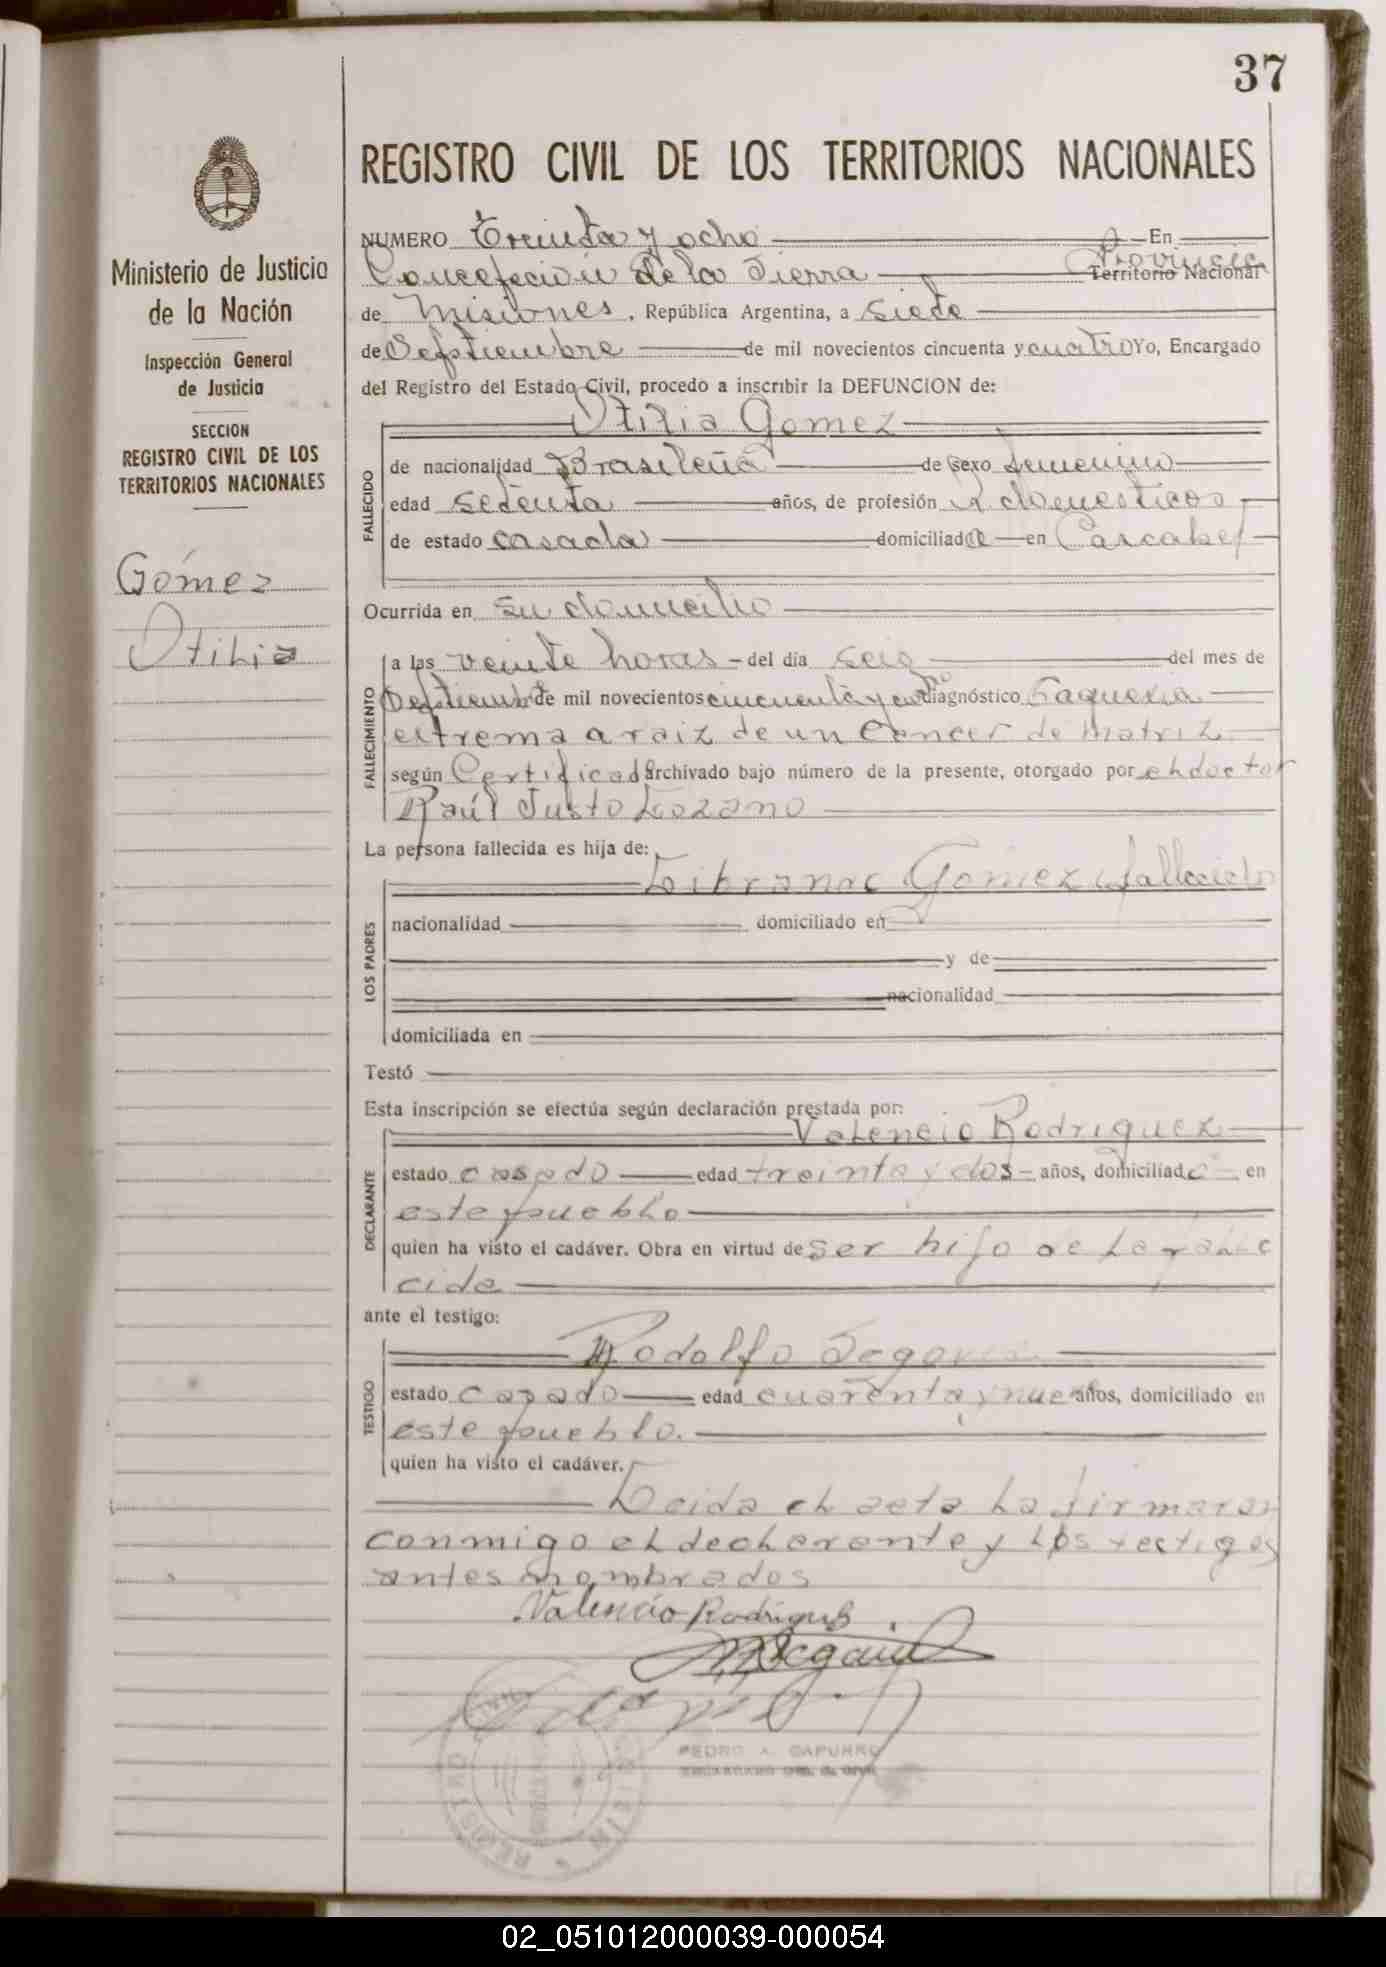 37
REGISTRO CIVIL DE LOS TERRITORIOS NACIONALES
Ministerio de Justicia
de la Nación
Inspección General
de Justicia
SECCION
REGISTRO CIVIL DE LOS
TERRITORIOS NACIONALES
Gómez
Otilia
NUMERO Treinta y ocho En
Concepción de la Sierra Provincia Territorio Nacional
de Misiones, República Argentina, a siete
de Septiembre de mil novecientos cincuenta y cuatro Yo, Encargado
del Registro del Estado Civil, procedo a inscribir la DEFUNCION de:
Otilia Gomez
FALLECIDO
de nacionalidad Brasileña de sexo femenino
edad setenta años, de profesión Q. domesticos
de estado casada domiciliada en Cascabel
Ocurrida en su domicilio
FALLECIMIENTO
a las veinte horas del día seis del mes de
Septiembre de mil novecientos cincuenta y diagnóstico Caquexia
extrema a raiz de un Cancer de matriz
según Certificado archivado bajo número de la presente, otorgado por el doctor
Raúl Justo Lozano
La persona fallecida es hija de:
LOS PADRES
Librano Gomez fallecido
nacionalidad domiciliado en
y de
nacionalidad
domiciliada en
Testó
Esta inscripción se efectúa según declaración prestada por:
DECLARANTE
Valencio Rodriguez
estado casado edad treinta y dos años, domiciliado en
este pueblo
quien ha visto el cadáver. Obra en virtud de ser hijo de la falle
cida
ante el testigo:
TESTIGO
Rodolfo Segovia
estado casado edad cuarenta y nueve años, domiciliado en
este pueblo.
quien ha visto el cadáver.
Leida el acta la firmaron
conmigo el declarante y los testigos
antes nombrados
Valencio Rodrigues
PEDRO A. CAPURRO
02_051012000039-000054